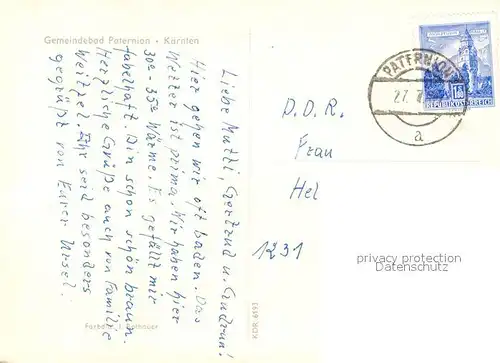 Gemeindebad Paternion - Kärnten
Liebe Mutti, Gertrud u. Gudrun!
Hier gehen wir oft baden. Das
Wetter ist prima. Wir haben hier
30°-35° Wärme. Es gefällt mir
fabelhaft. Bin schon schön braun.
Herzliche Grüße auch von Familie
Weitzel. Ihr seid besonders
gegrüßt von Eurer Ursel.
KDR 6193
REPUBLIK ÖSTERREICH
PATERNION
27. 7.
a
D.D.R.
Frau
Hel
1231
privacy protection
Datenschutz